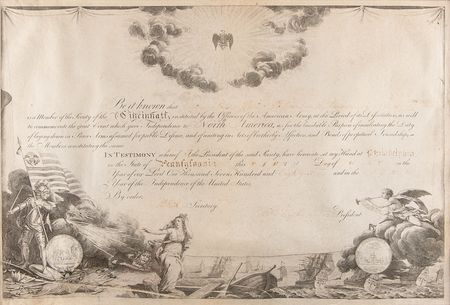 Be it known that
is a Member of the Society of the Cincinnati, instituted by the Officers of the American Army, at the Period of its Dissolution, as well
to commemorate the great Event which gave Independence to North America, as for the laudable Purpose of inculcating the Duty
of laying down in Peace Arms assumed for public Defence, and of uniting in Acts of brotherly Affection, and Bonds of perpetual Friendship,
the Members constituting the same.
In Testimony whereof I, the President of the said Society, have hereunto set my Hand at
in the State of Pennsylvania this Day of in the
Year of our Lord One Thousand Seven Hundred and and in the
Year of the Independence of the United States.
By order,
Secretary.
President.